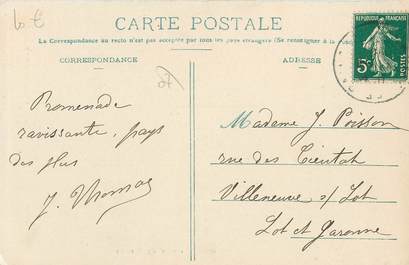 10 €
CARTE POSTALE
La Correspondance au recto n'est pas acceptée par tous les pays étrangers (Se renseigner à la
CORRESPONDANCE
ADRESSE
REPUBLIQUE FRANÇAISE
5c
POSTES
Promenade
ravissante, pays
des plus
J. Thomas
Madame J. Poisson
rue des
Villeneuve s/ Lot
Lot et Garonne